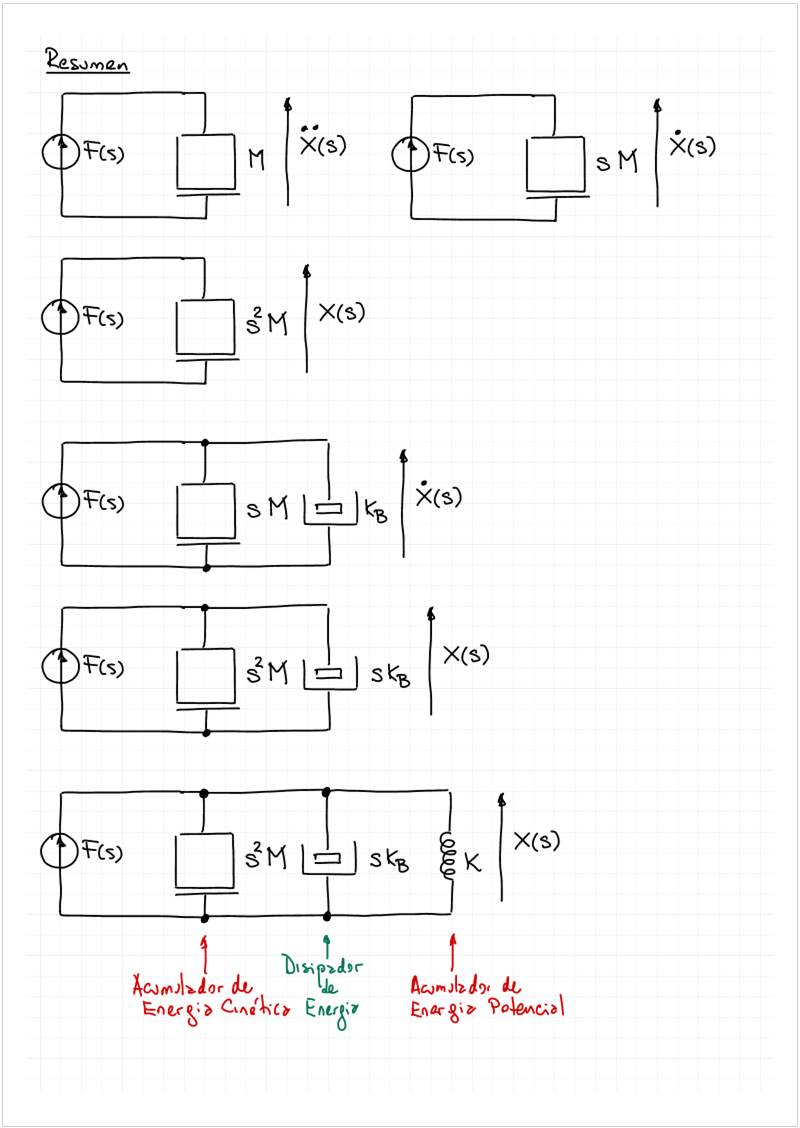 Resumen
F(s) M Ẍ(s) F(s) sM Ẋ(s)
F(s) s²M X(s)
F(s) sM K_B Ẋ(s)
F(s) s²M sK_B X(s)
F(s) s²M sK_B K X(s)
Acumulador de
Energia Cinética
Disipador
de
Energia
Acumulador de
Energia Potencial